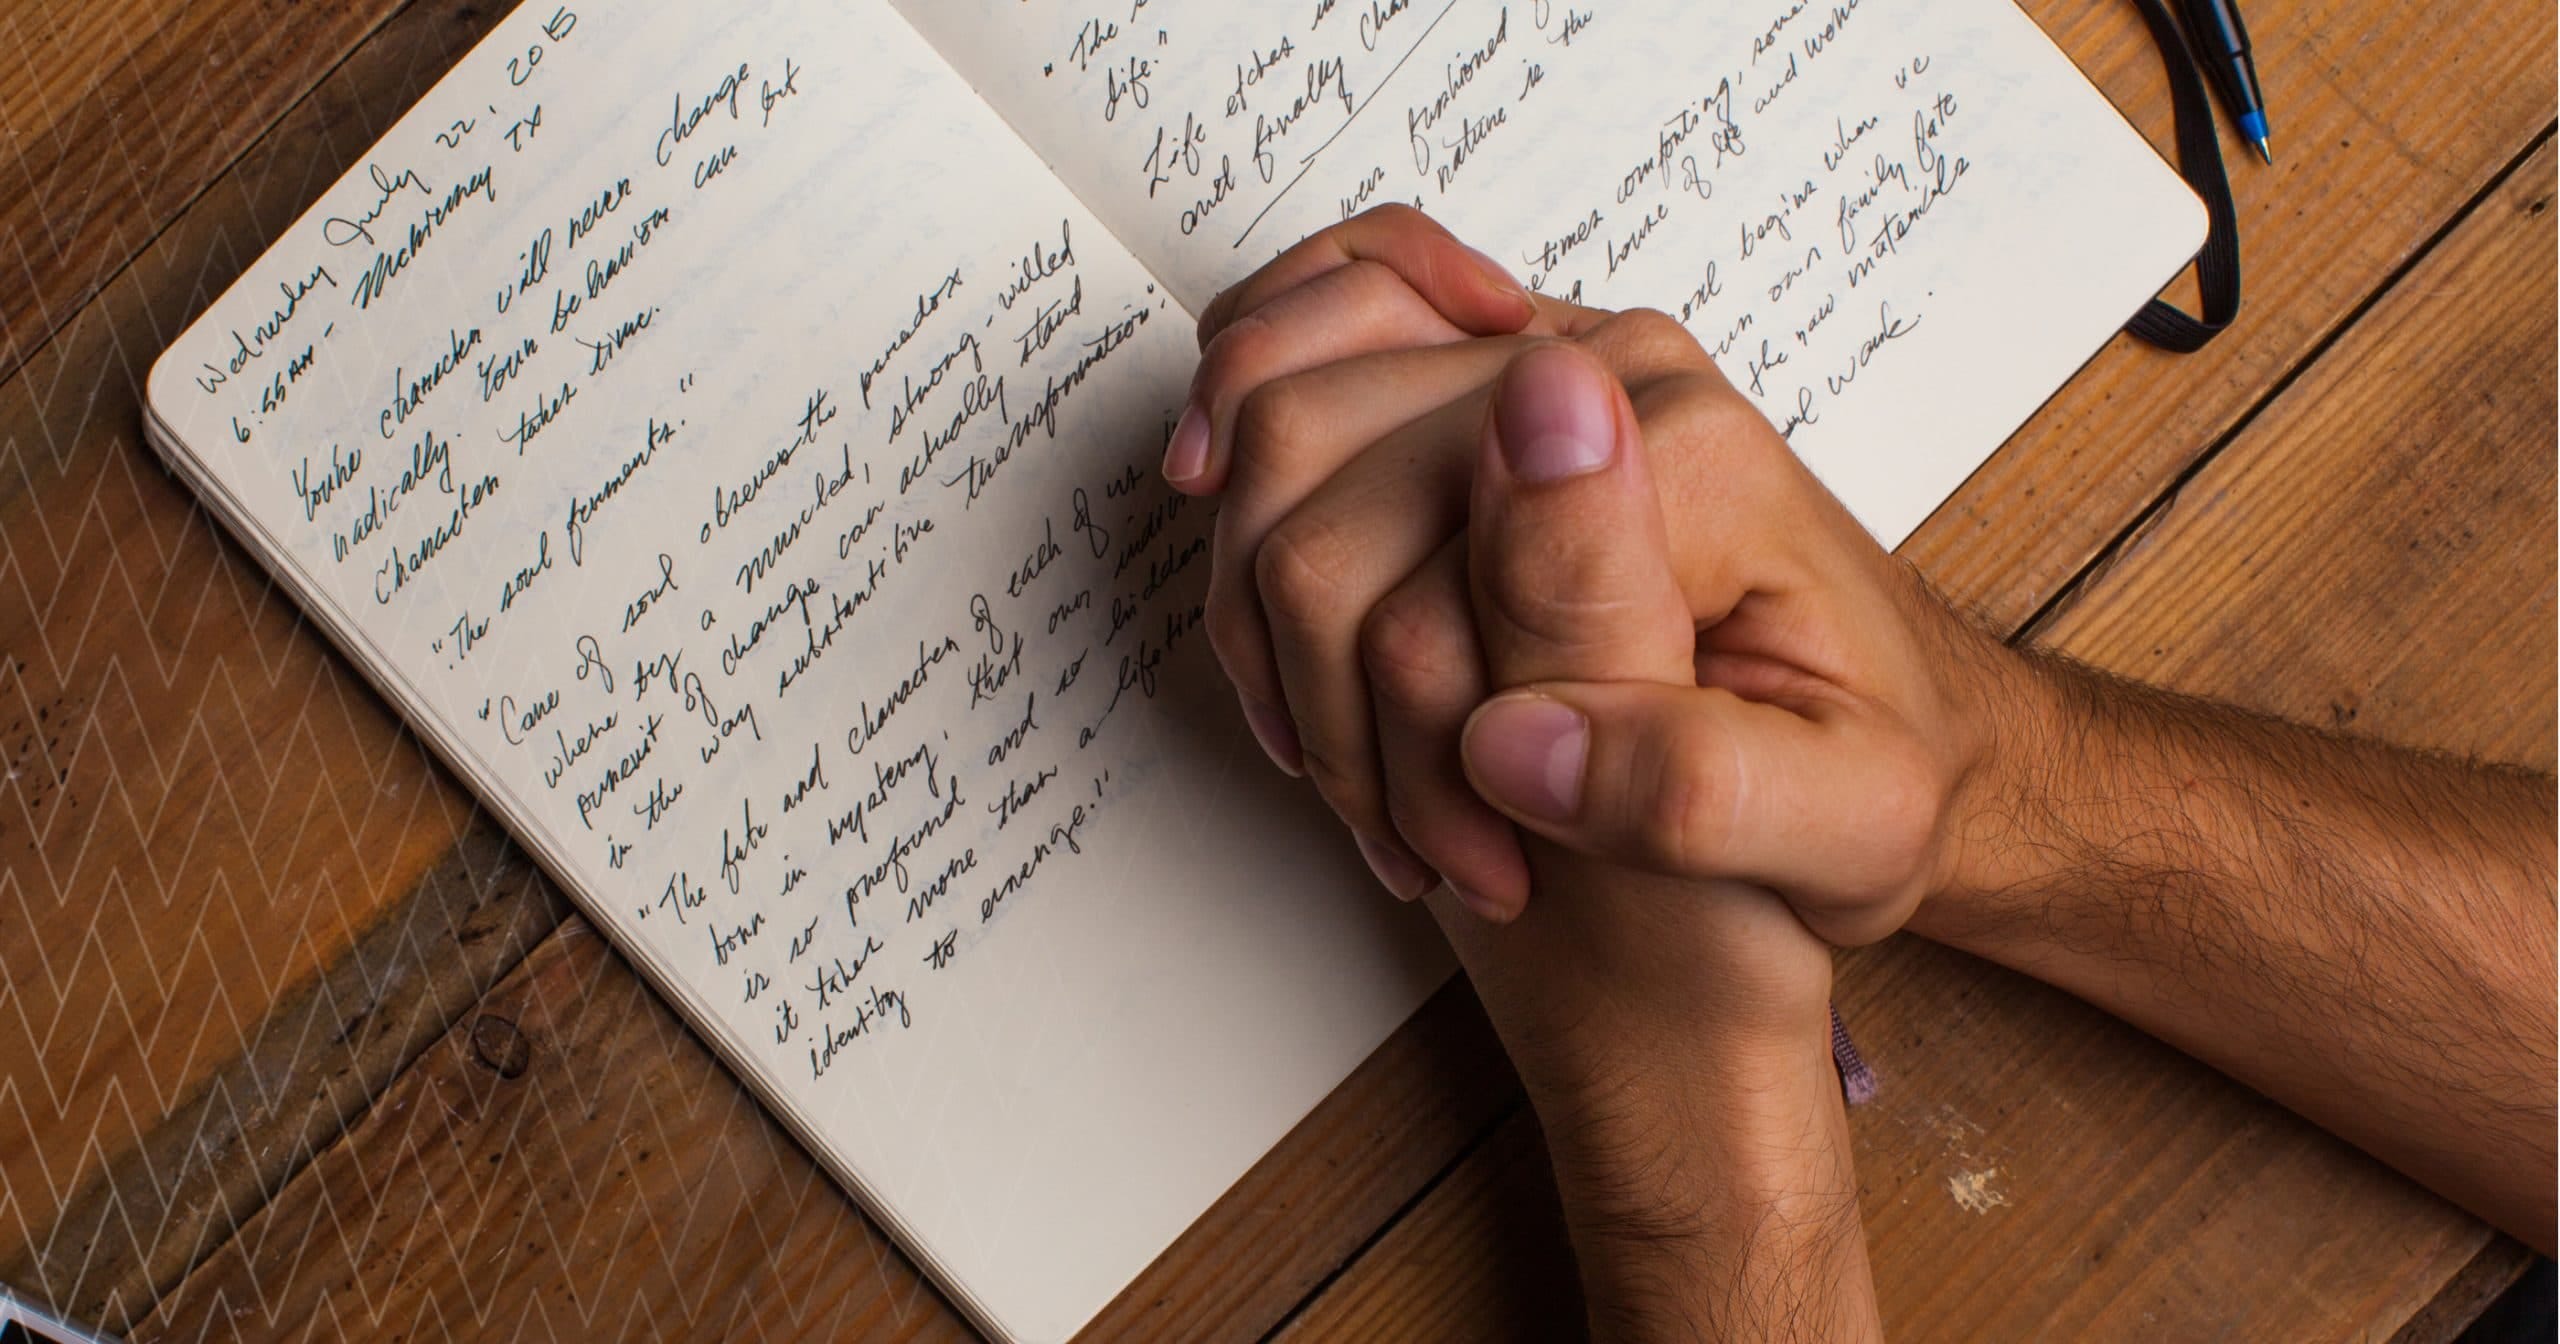 Wednesday July 22, 2015
6:55AM - McKinney TX
You're character will never change
radically. Your behavior can but
Character takes time.
"The soul ferments."
"Care of soul observes the paradox
where by a muscled, strong-willed
pursuit of change can actually stand
in the way substantitive transformation."
"The fate and character of each of us is
born in mystery, that our individ
is so profound and so hidden
it takes more than a lifetim
identity to emerge."
"The s
life."
Life etches in
and finally cha
was fashioned
s nature is the
etimes comforting, some
ng house of life and wom
soul begins when we
our own family fate
the raw materials
soul work.